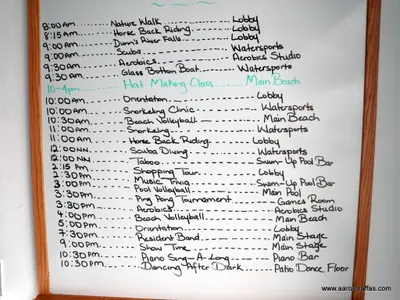 8:00AM Nature Walk Lobby
8:15AM Horse Back Riding Lobby
9:00AM Dunn's River Falls Lobby
9:00AM Scuba Watersports
9:30AM Aerobics Aerobics Studio
9:30AM Glass Bottom Boat Watersports
10-4pm Hat Making Class Main Beach
10:00AM Orientation Lobby
10:00AM Snorkeling Clinic Watersports
10:30AM Beach Volleyball Main Beach
11:00AM Snorkeling Watersports
11:00AM Horse Back Riding Lobby
12:00NN Scuba Diving Watersports
12:00NN Taboo Swim-Up Pool Bar
2:15PM Shopping Tour Lobby
2:30PM Music Trivia Swim-Up Pool Bar
3:00PM Pool Volleyball Main Pool
3:30PM Ping Pong Tournament Games Room
3:30PM Aerobics Aerobics Studio
4:00PM Beach Volleyball Main Beach
5:00PM Orientation Lobby
7:30PM Resident Band Main Stage
9:00PM Show Time Main Stage
10:30PM Piano Sing-A-Long Piano Bar
10:30PM Dancing After Dark Patio Dance Floor